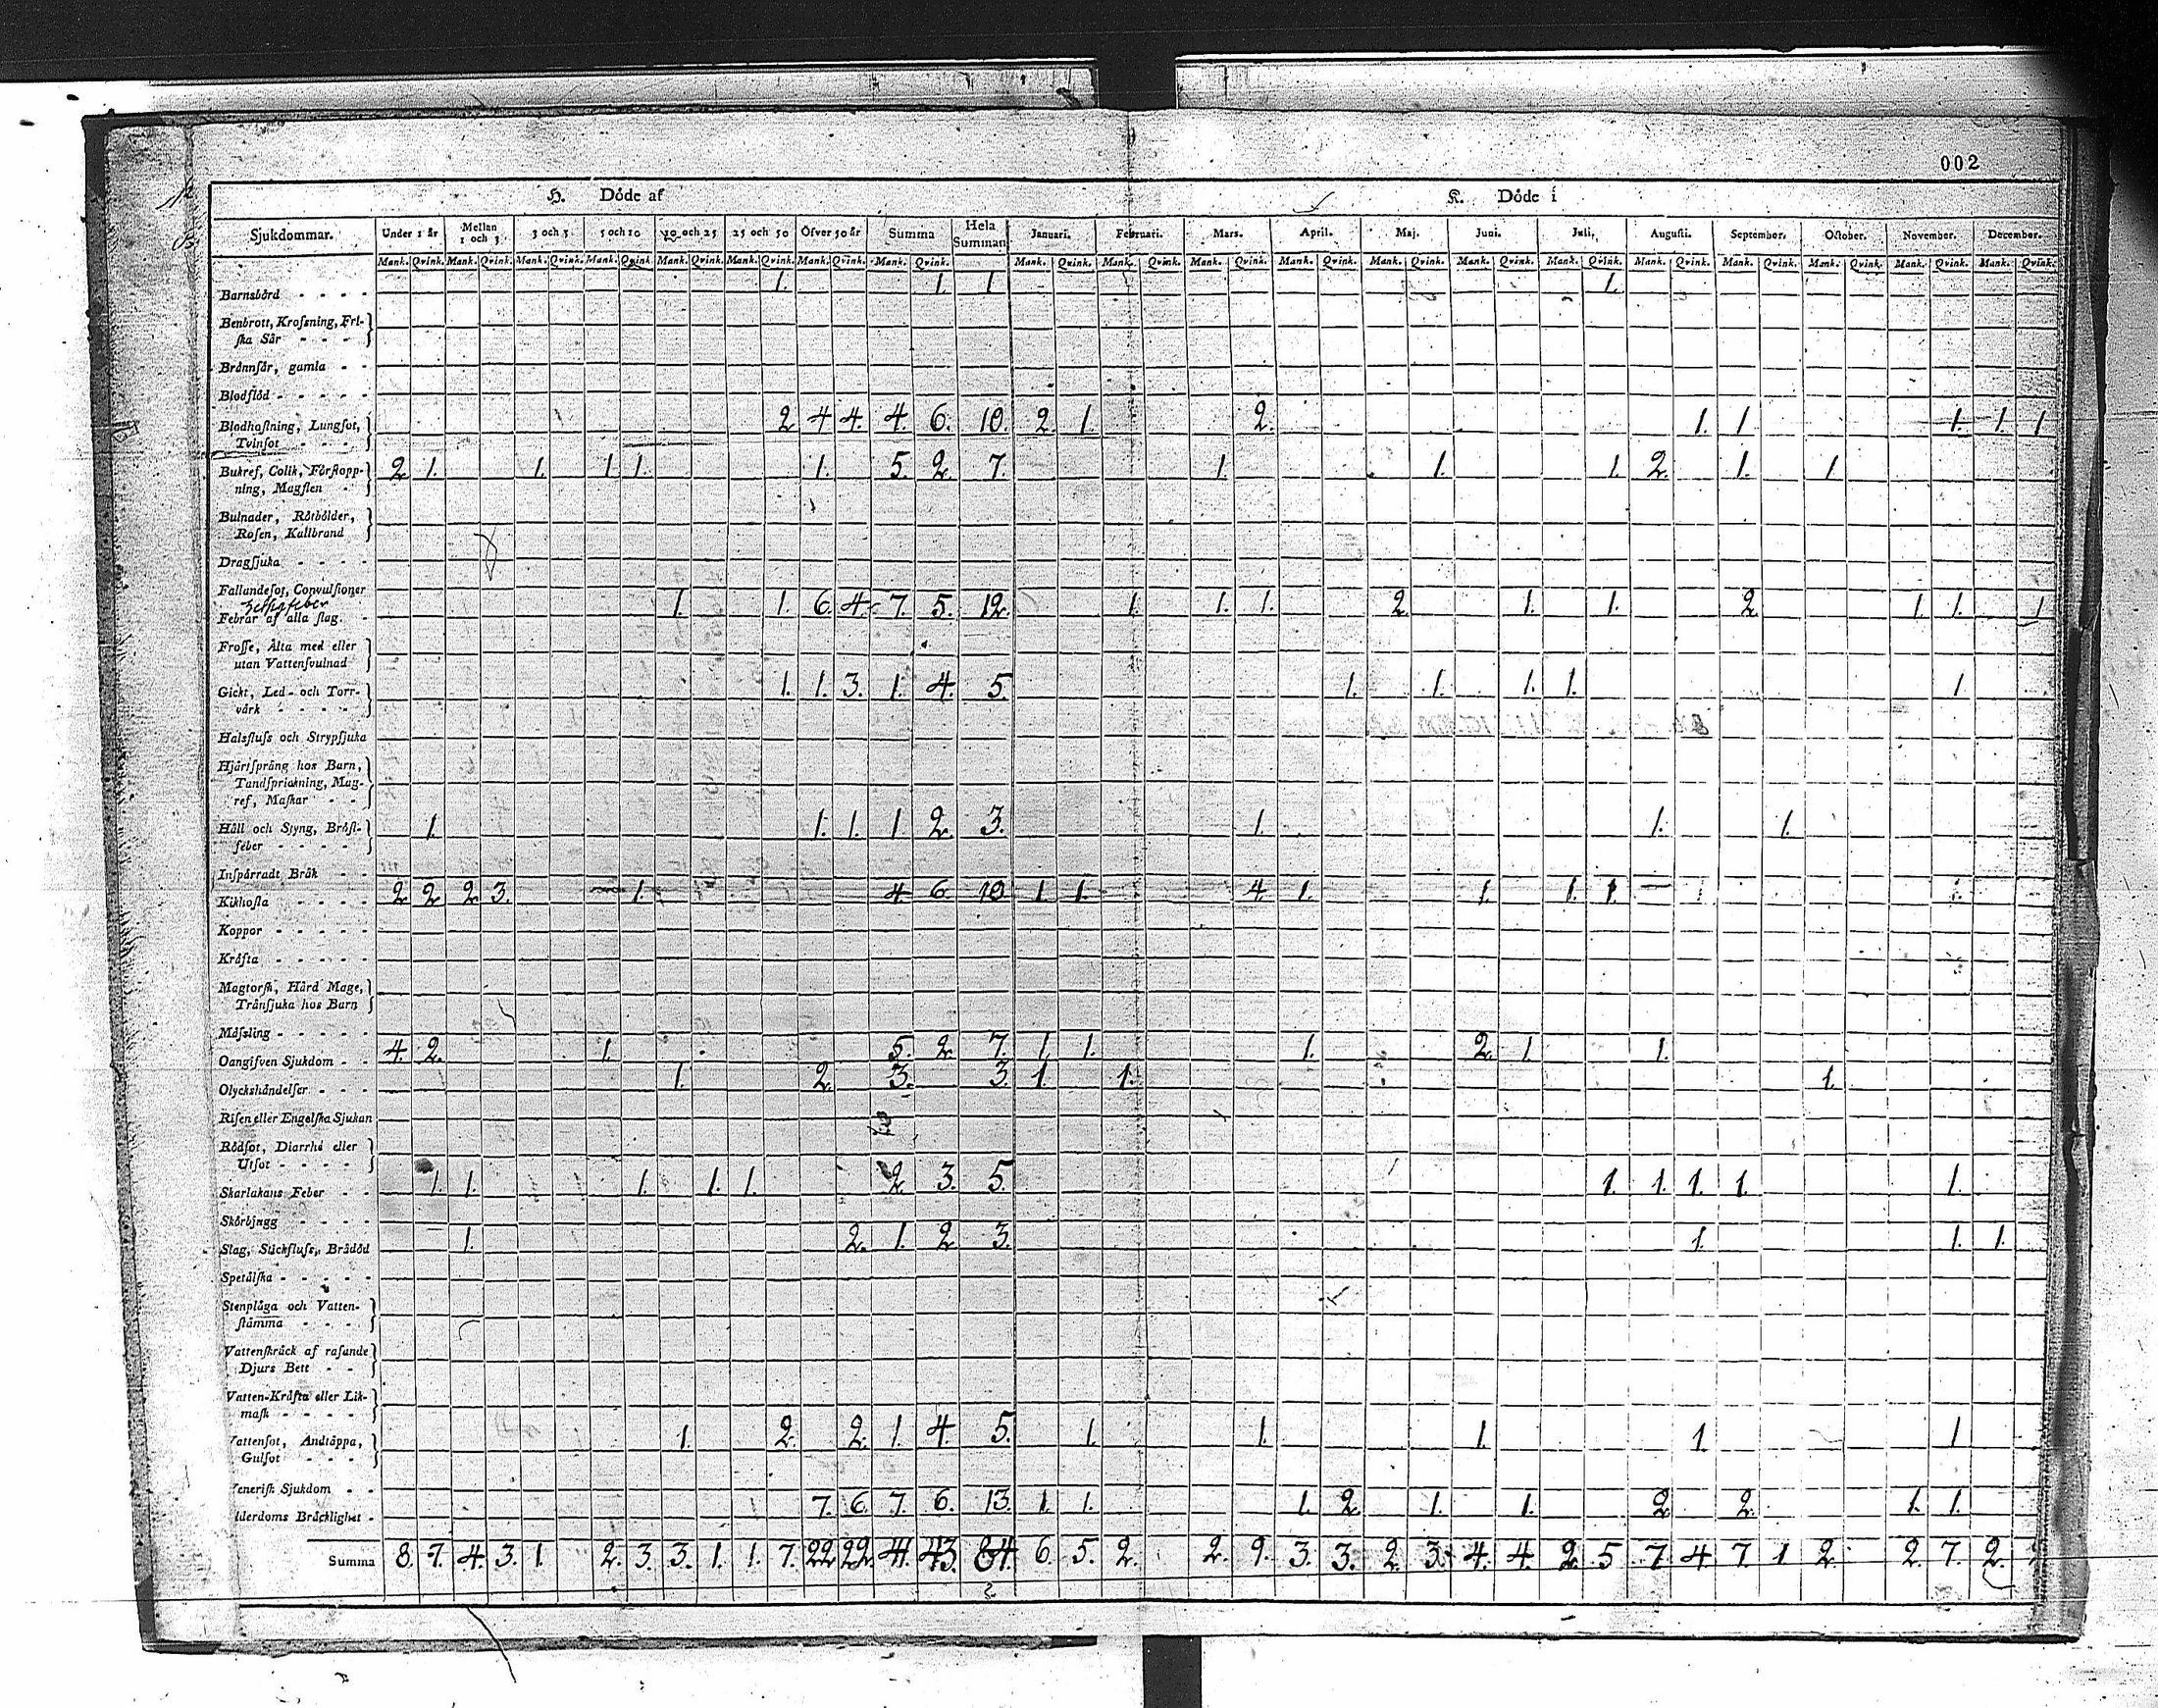 002
H. Döde af K. Döde i
Sjukdommar. Under 1 år Mellan 1 och 3 3 och 5 5 och 10 10 och 25 25 och 50 Öfver 50 år Summa Hela Summan Januari. Februari. Mars. April. Maj. Juni. Juli. Augusti. September. October. November. December.
Mank. Qvink. Mank. Qvink. Mank. Qvink. Mank. Qvink. Mank. Qvink. Mank. Qvink. Mank. Qvink. Mank. Qvink. Mank. Qvink. Mank. Qvink. Mank. Qvink. Mank. Qvink. Mank. Qvink. Mank. Qvink. Mank. Qvink. Mank. Qvink. Mank. Qvink. Mank. Qvink. Mank. Qvink. Mank. Qvink.
Barnsbörd 1. 1. 1 1.
Benbrott, Krosning, Fri-
ska Sår
Brännsår, gamla
Blodflöd
Blodhostning, Lungsot, 2 4 4. 4. 6. 10. 2. 1. 2. 1. 1 1. 1. 1
Tvinsot
Bukref, Colik, Förstopp- 2 1. 1. 1. 1. 1. 5. 2. 7. 1. 1. 1. 2. 1. 1
ning, Magsten
Bulnader, Rötbölder,
Rosen, Kallbrand
Dragsjuka
Fallandesot, Convulsioner
Febrar af alla slag. 1. 1. 6. 4. 7. 5. 12. 1. 1. 1. 2 1. 1. 2 1. 1. 1
Frossa, Älta med eller
utan Vattensvulnad
Gickt, Led- och Torr- 1. 1. 3. 1. 4. 5. 1. 1. 1. 1. 1
värk
Halsfluss och Strypsjuka
Hjärtsprång hos Barn,
Tandsprickning, Mag-
ref, Maskar
Håll och Styng, Bröst- 1. 1. 1. 1 2. 3. 1. 1. 1.
feber
Inspärradt Bråk
Kikhosta 2 2 2 3. 1. 4 6 10 1. 1. 4. 1. 1. 1. 1.
Koppor
Kräfta
Magtorsk, Hård Mage,
Tränsjuka hos Barn
Mäsling
Oangifven Sjukdom 4. 2. 1. 5. 2. 7. 1. 1. 1. 2. 1. 1.
Olyckshändelser 1. 2. 3. 3. 1. 1. 1.
Risen eller Engelska Sjukan
Rödsot, Diarrhé eller
Utsot
Skarlakans Feber 1. 1. 1. 1. 1. 2. 3. 5. 1. 1. 1. 1. 1.
Skörbjugg
Slag, Stickfluss, Brådöd 1. 2. 1. 2 3. 1. 1. 1.
Spetälska
Stenplåga och Vatten-
stämma
Vattenskräck af rasande
Djurs Bett
Vatten-Kräfta eller Lik-
mask
Vattensot, Andtäppa, 1. 2. 2. 1. 4. 5. 1. 1. 1. 1 1
Gulsot
Venerisk Sjukdom
lderdoms Bräcklighet 7. 6. 7. 6. 13. 1. 1. 1. 2. 1. 1. 2 2. 1. 1.
Summa 8. 7. 4. 3. 1. 2. 3. 3. 1. 1. 7. 22 22. 41. 43. 84. 6. 5. 2. 2. 9. 3. 3. 2. 3. 4. 4. 2. 5 7. 4 7. 1 2. 2. 7. 2.